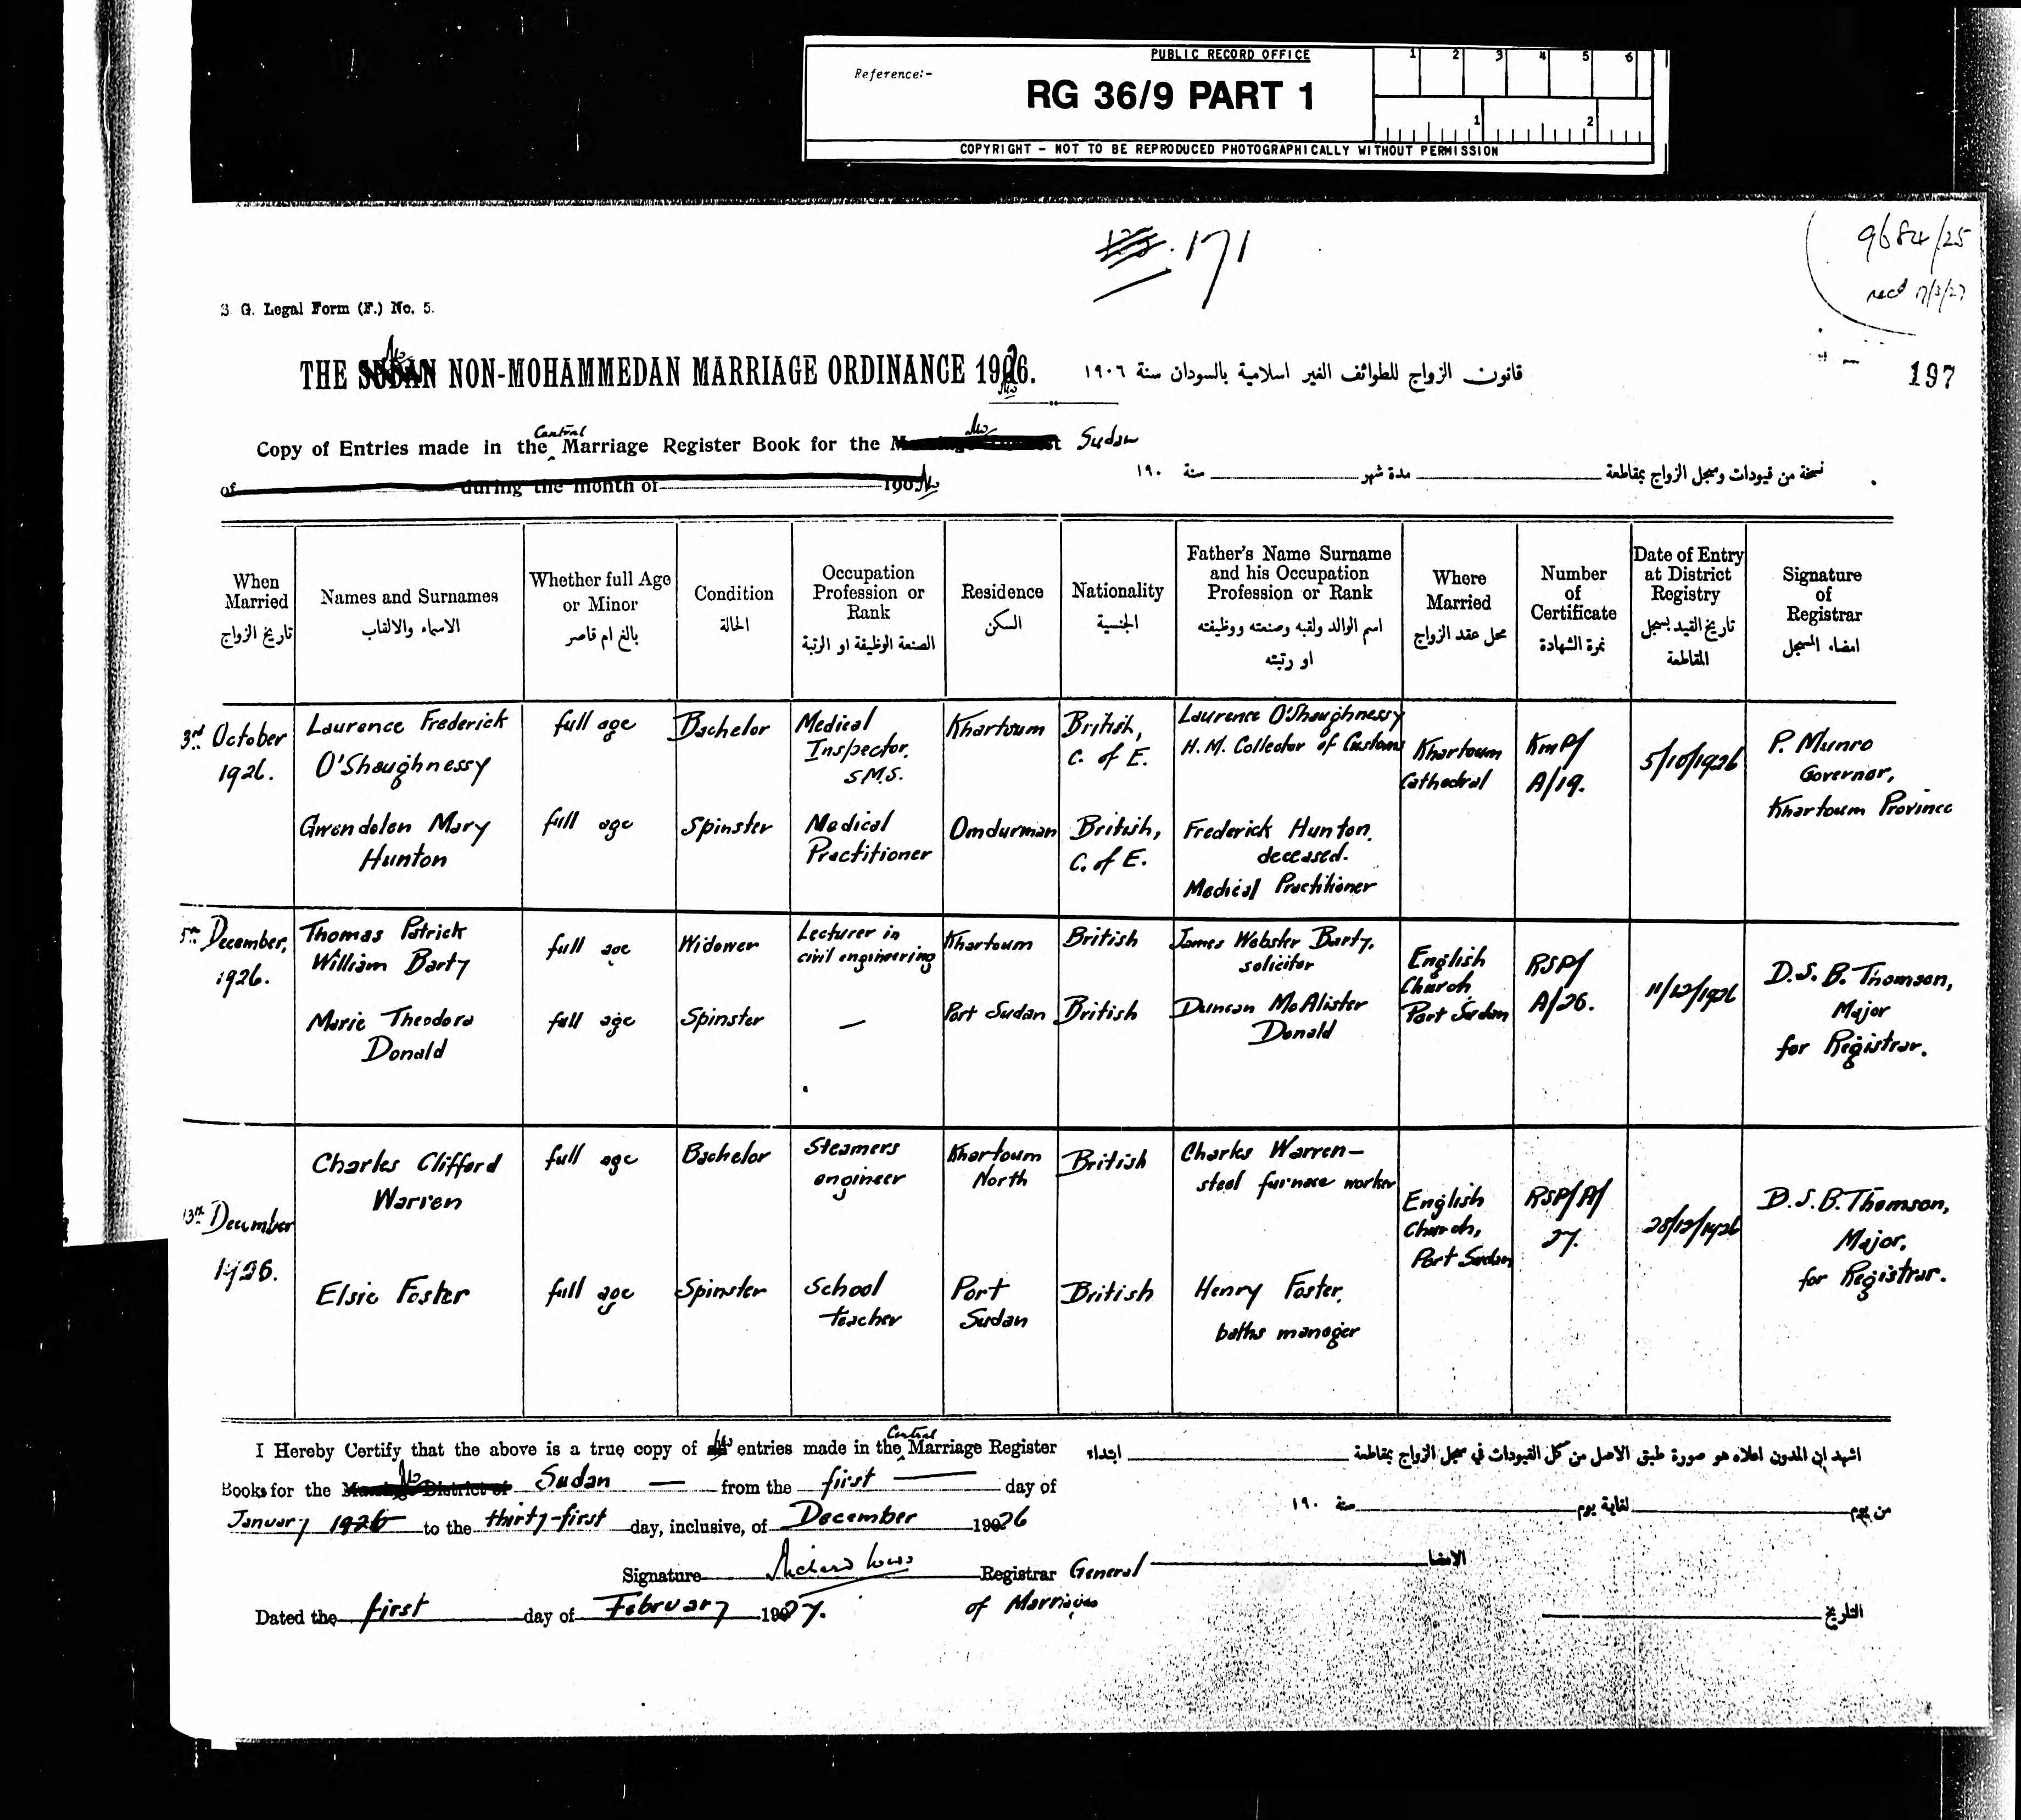 PUBLIC RECORD OFFICE
Reference:-
RG 36/9 PART 1
1 2 3 4 5 6
1 2
COPYRIGHT - NOT TO BE REPRODUCED PHOTOGRAPHICALLY WITHOUT PERMISSION
171
9684/25
recd 17/3/27
S. G. Legal Form (F.) No. 5.
197
THE SUDAN NON-MOHAMMEDAN MARRIAGE ORDINANCE 1926.
قانون الزواج للطوائف الغير اسلامية بالسودان سنة ١٩٠٦
Copy of Entries made in the Central Marriage Register Book for the Sudan
of during the month of 190
نسخة من قيودات وسجل الزواج بمقاطعة مدة شهر سنة ١٩٠
When Married
تاريخ الزواج
Names and Surnames
الاسماء والالقاب
Whether full Age or Minor
بالغ ام قاصر
Condition
الحالة
Occupation Profession or Rank
الصنعة الوظيفة او الرتبة
Residence
السكن
Nationality
الجنسية
Father's Name Surname and his Occupation Profession or Rank
اسم الوالد ولقبه وصنعته ووظيفته او رتبته
Where Married
محل عقد الزواج
Number of Certificate
نمرة الشهادة
Date of Entry at District Registry
تاريخ القيد بسجل المقاطعة
Signature of Registrar
امضاء المسجل
3rd October 1926.
Laurence Frederick O'Shaughnessy
full age
Bachelor
Medical Inspector. S.M.S.
Khartoum
British, C. of E.
Laurence O'Shaughnessy H.M. Collector of Customs
Khartoum Cathedral
KmP/ A/19.
5/10/1926
P. Munro Governor, Khartoum Province
Gwendolen Mary Hunton
full age
Spinster
Medical Practitioner
Omdurman
British, C. of E.
Frederick Hunton, deceased. Medical Practitioner
5th December, 1926.
Thomas Patrick William Barty
full age
Widower
Lecturer in civil engineering
Khartoum
British
James Webster Barty, solicitor
English Church Port Sudan
RSP/ A/26.
11/12/1926
D.S.B. Thomson, Major for Registrar.
Marie Theodora Donald
full age
Spinster
—
Port Sudan
British
Duncan McAlister Donald
13th December 1926.
Charles Clifford Warren
full age
Bachelor
Steamers engineer
Khartoum North
British
Charles Warren- steel furnace worker
English Church, Port Sudan
RSP/A/ 27.
28/12/1926
D.S.B. Thomson, Major. for Registrar.
Elsie Foster
full age
Spinster
School teacher
Port Sudan
British
Henry Foster, baths manager
I Hereby Certify that the above is a true copy of entries made in the Central Marriage Register
Books for the Sudan — from the first day of
January 1926 to the thirty-first day, inclusive, of December 1926
Signature Registrar General
Dated the first day of February 1927. of Marriages
اشهد ان المدون اعلاه هو صورة طبق الاصل من كل القيودات في سجل الزواج بمقاطعة ابتداء
من يوم لغاية يوم سنة ١٩٠
الامضا
التاريخ